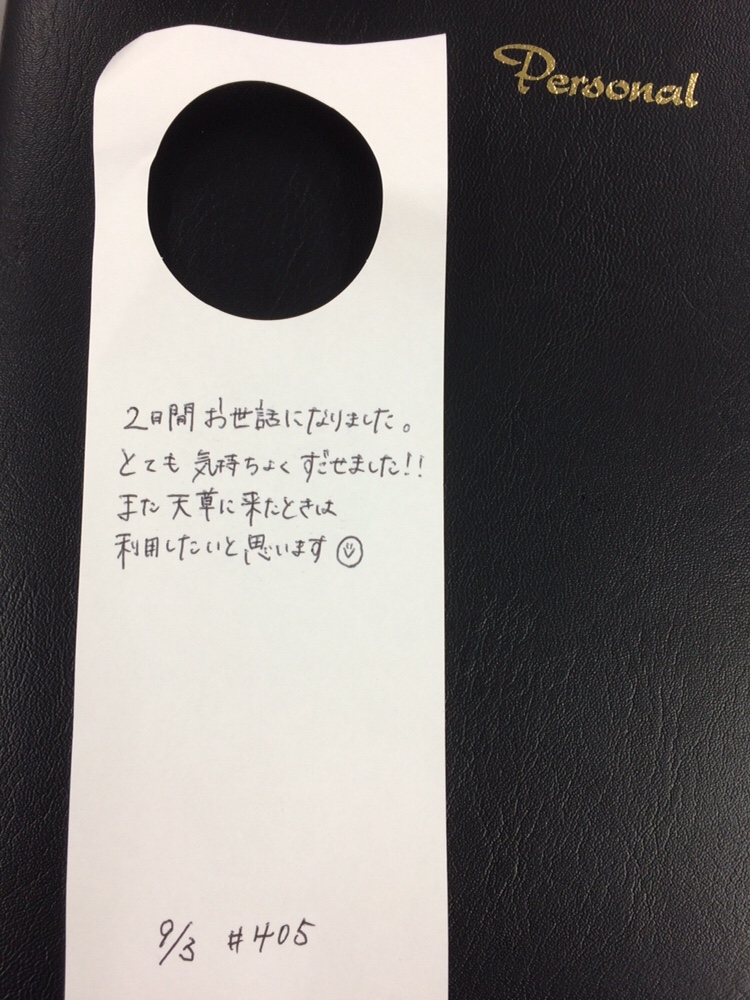 Personal
2日間お世話になりました。
とても気持ちよくすごせました!!
また天草に来たときは
利用したいと思います☺
9/3 #405